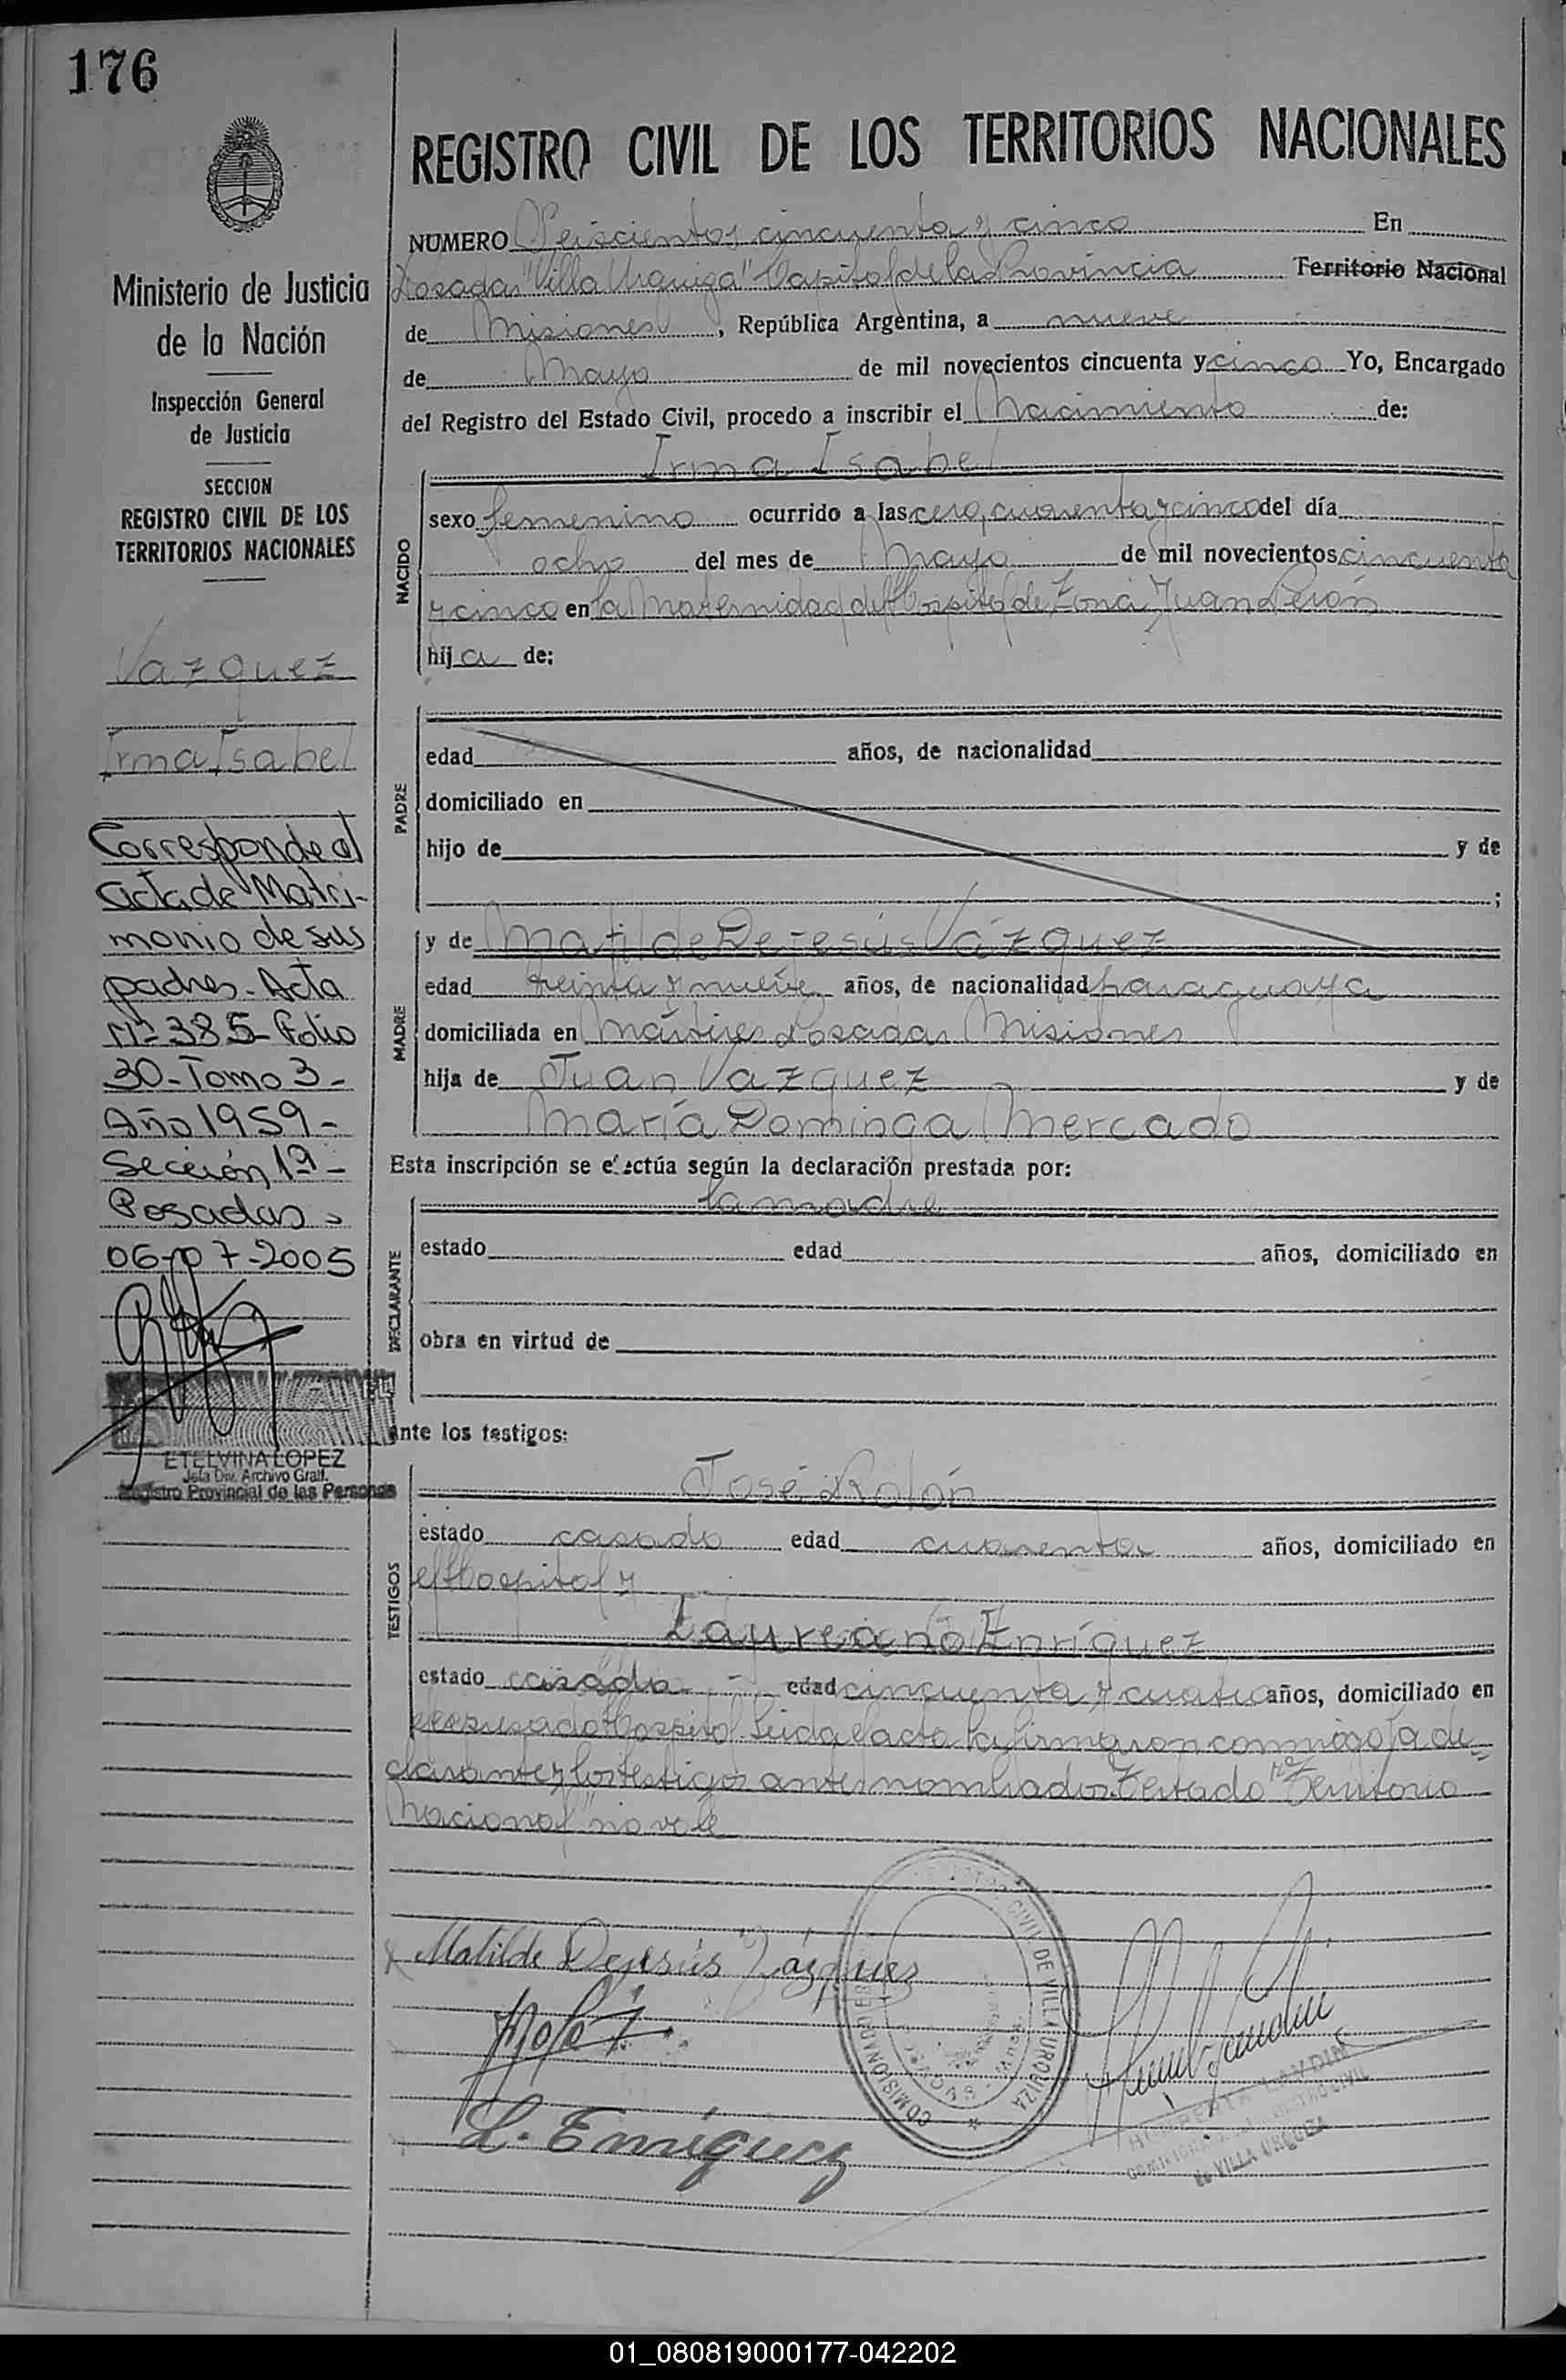 176
REGISTRO CIVIL DE LOS TERRITORIOS NACIONALES
Ministerio de Justicia
de la Nación
Inspección General
de Justicia
SECCION
REGISTRO CIVIL DE LOS
TERRITORIOS NACIONALES
Vazquez
Irma Isabel
Corresponde al
acta de Matri-
monio de sus
padres - Acta
Nº 385 - Folio
30 - Tomo 3 -
Año 1959 -
Sección 1ª -
Posadas -
06-07-2005
ETELVINA LOPEZ
Jefa Div. Archivo Gral.
Registro Provincial de las Personas
NUMERO Seiscientos cincuenta y cinco En
Posadas "Villa Urquiza" Capital de la Provincia Territorio Nacional
de Misiones, República Argentina, a nueve
de Mayo de mil novecientos cincuenta y cinco Yo, Encargado
del Registro del Estado Civil, procedo a inscribir el Nacimiento de:
NACIDO
Irma Isabel
sexo femenino ocurrido a las cero, cuarenta y cinco del día
ocho del mes de Mayo de mil novecientos cincuenta
y cinco en la Maternidad del Hospital de Zona Juan Perón
hija de:
PADRE
edad años, de nacionalidad
domiciliado en
hijo de y de
;
MADRE
y de Matilde Dejesús Vázquez
edad treinta y nueve años, de nacionalidad paraguaya
domiciliada en Mártires Posadas Misiones
hija de Juan Vazquez y de
María Dominga Mercado
Esta inscripción se efectúa según la declaración prestada por:
DECLARANTE
la madre
estado edad años, domiciliado en
obra en virtud de
ante los testigos:
TESTIGOS
José Rolón
estado casado edad cuarenta años, domiciliado en
el Hospital y
Laureano Enríquez
estado casado edad cincuenta y cuatro años, domiciliado en
el expresado Hospital. Leida el acta la firmaron conmigo la de-
clarante y los testigos antes nombrados. Testado "Territorio
Nacional" no vale
Matilde Dejesús Vázquez
L. Enríquez
CIVIL DE VILLA URQUIZA
LANDIN
de VILLA URQUIZA
01_080819000177-042202